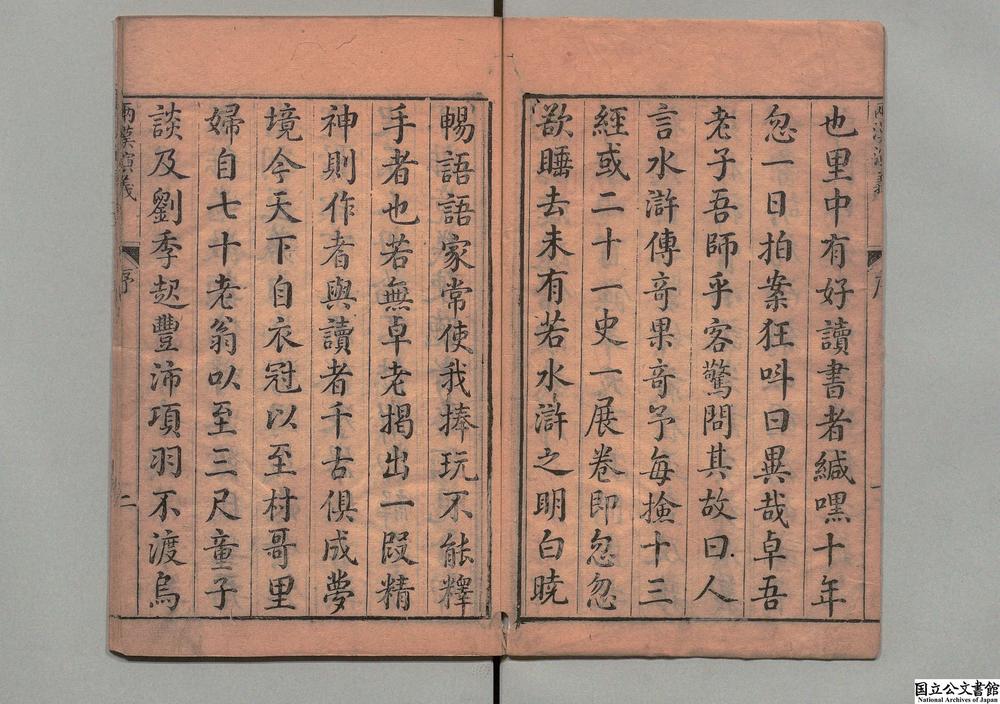 也里中有好讀書者緘嘿十年
忽一日拍案狂呌曰異哉卓吾
老子吾師乎客驚問其故曰人
言水滸傳奇果奇予每撿十三
經或二十一史一展卷即忽忽
欲睡去未有若水滸之明白曉
暢語語家常使我捧玩不能釋
手者也若無卓老揭出一段精
神則作者與讀者千古俱成夢
境今天下自衣冠以至村哥里
婦自七十老翁以至三尺童子
談及劉季起豐沛項羽不渡烏
兩漢演義 序 二
国立公文書館
National Archives of Japan